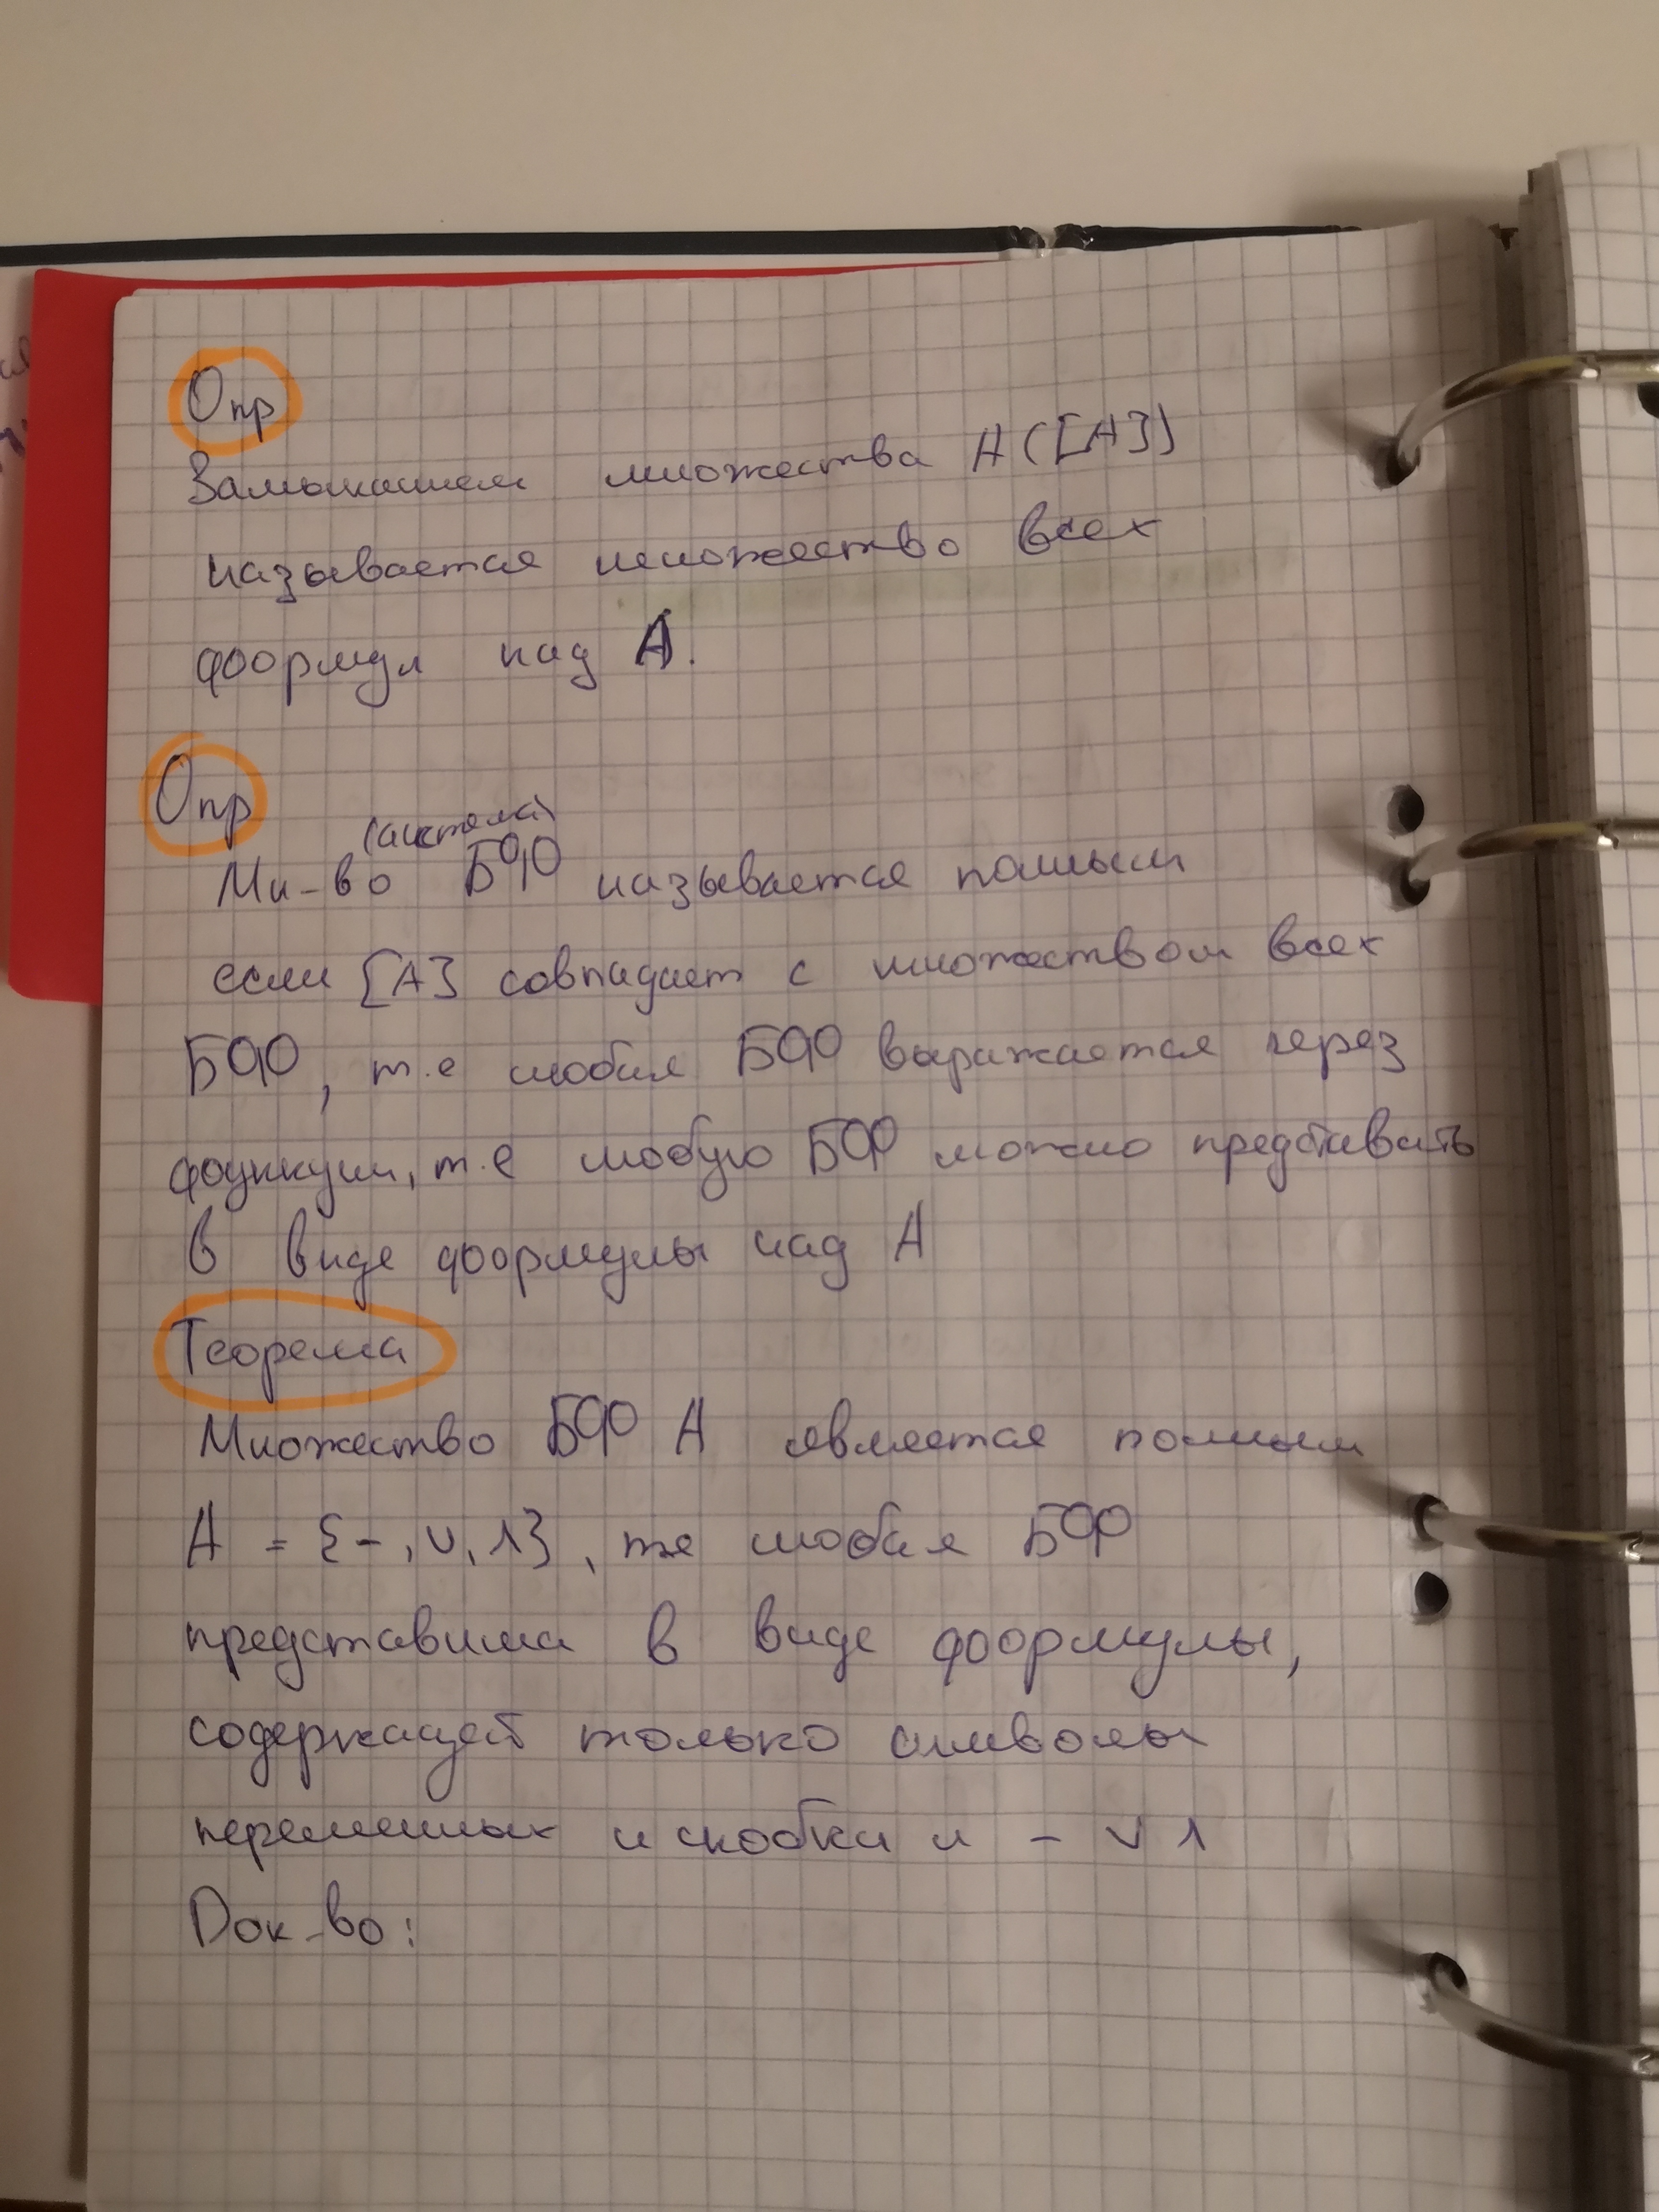 Опр
Замыканием множества А ([А])
называется множество всех
формул над А.
Опр
(система)
Мн-во БФ называется полным
если [А] совпадает с множеством всех
БФ, т.е любая БФ выражается через
функции, т.е любую БФ можно представить
в виде формулы над А
Теорема
Множество БФ А является полным
А = {-, ∨, ∧}, те любая БФ
представима в виде формулы,
содержащей только символы
переменных и скобки и - ∨ ∧
Док-во: